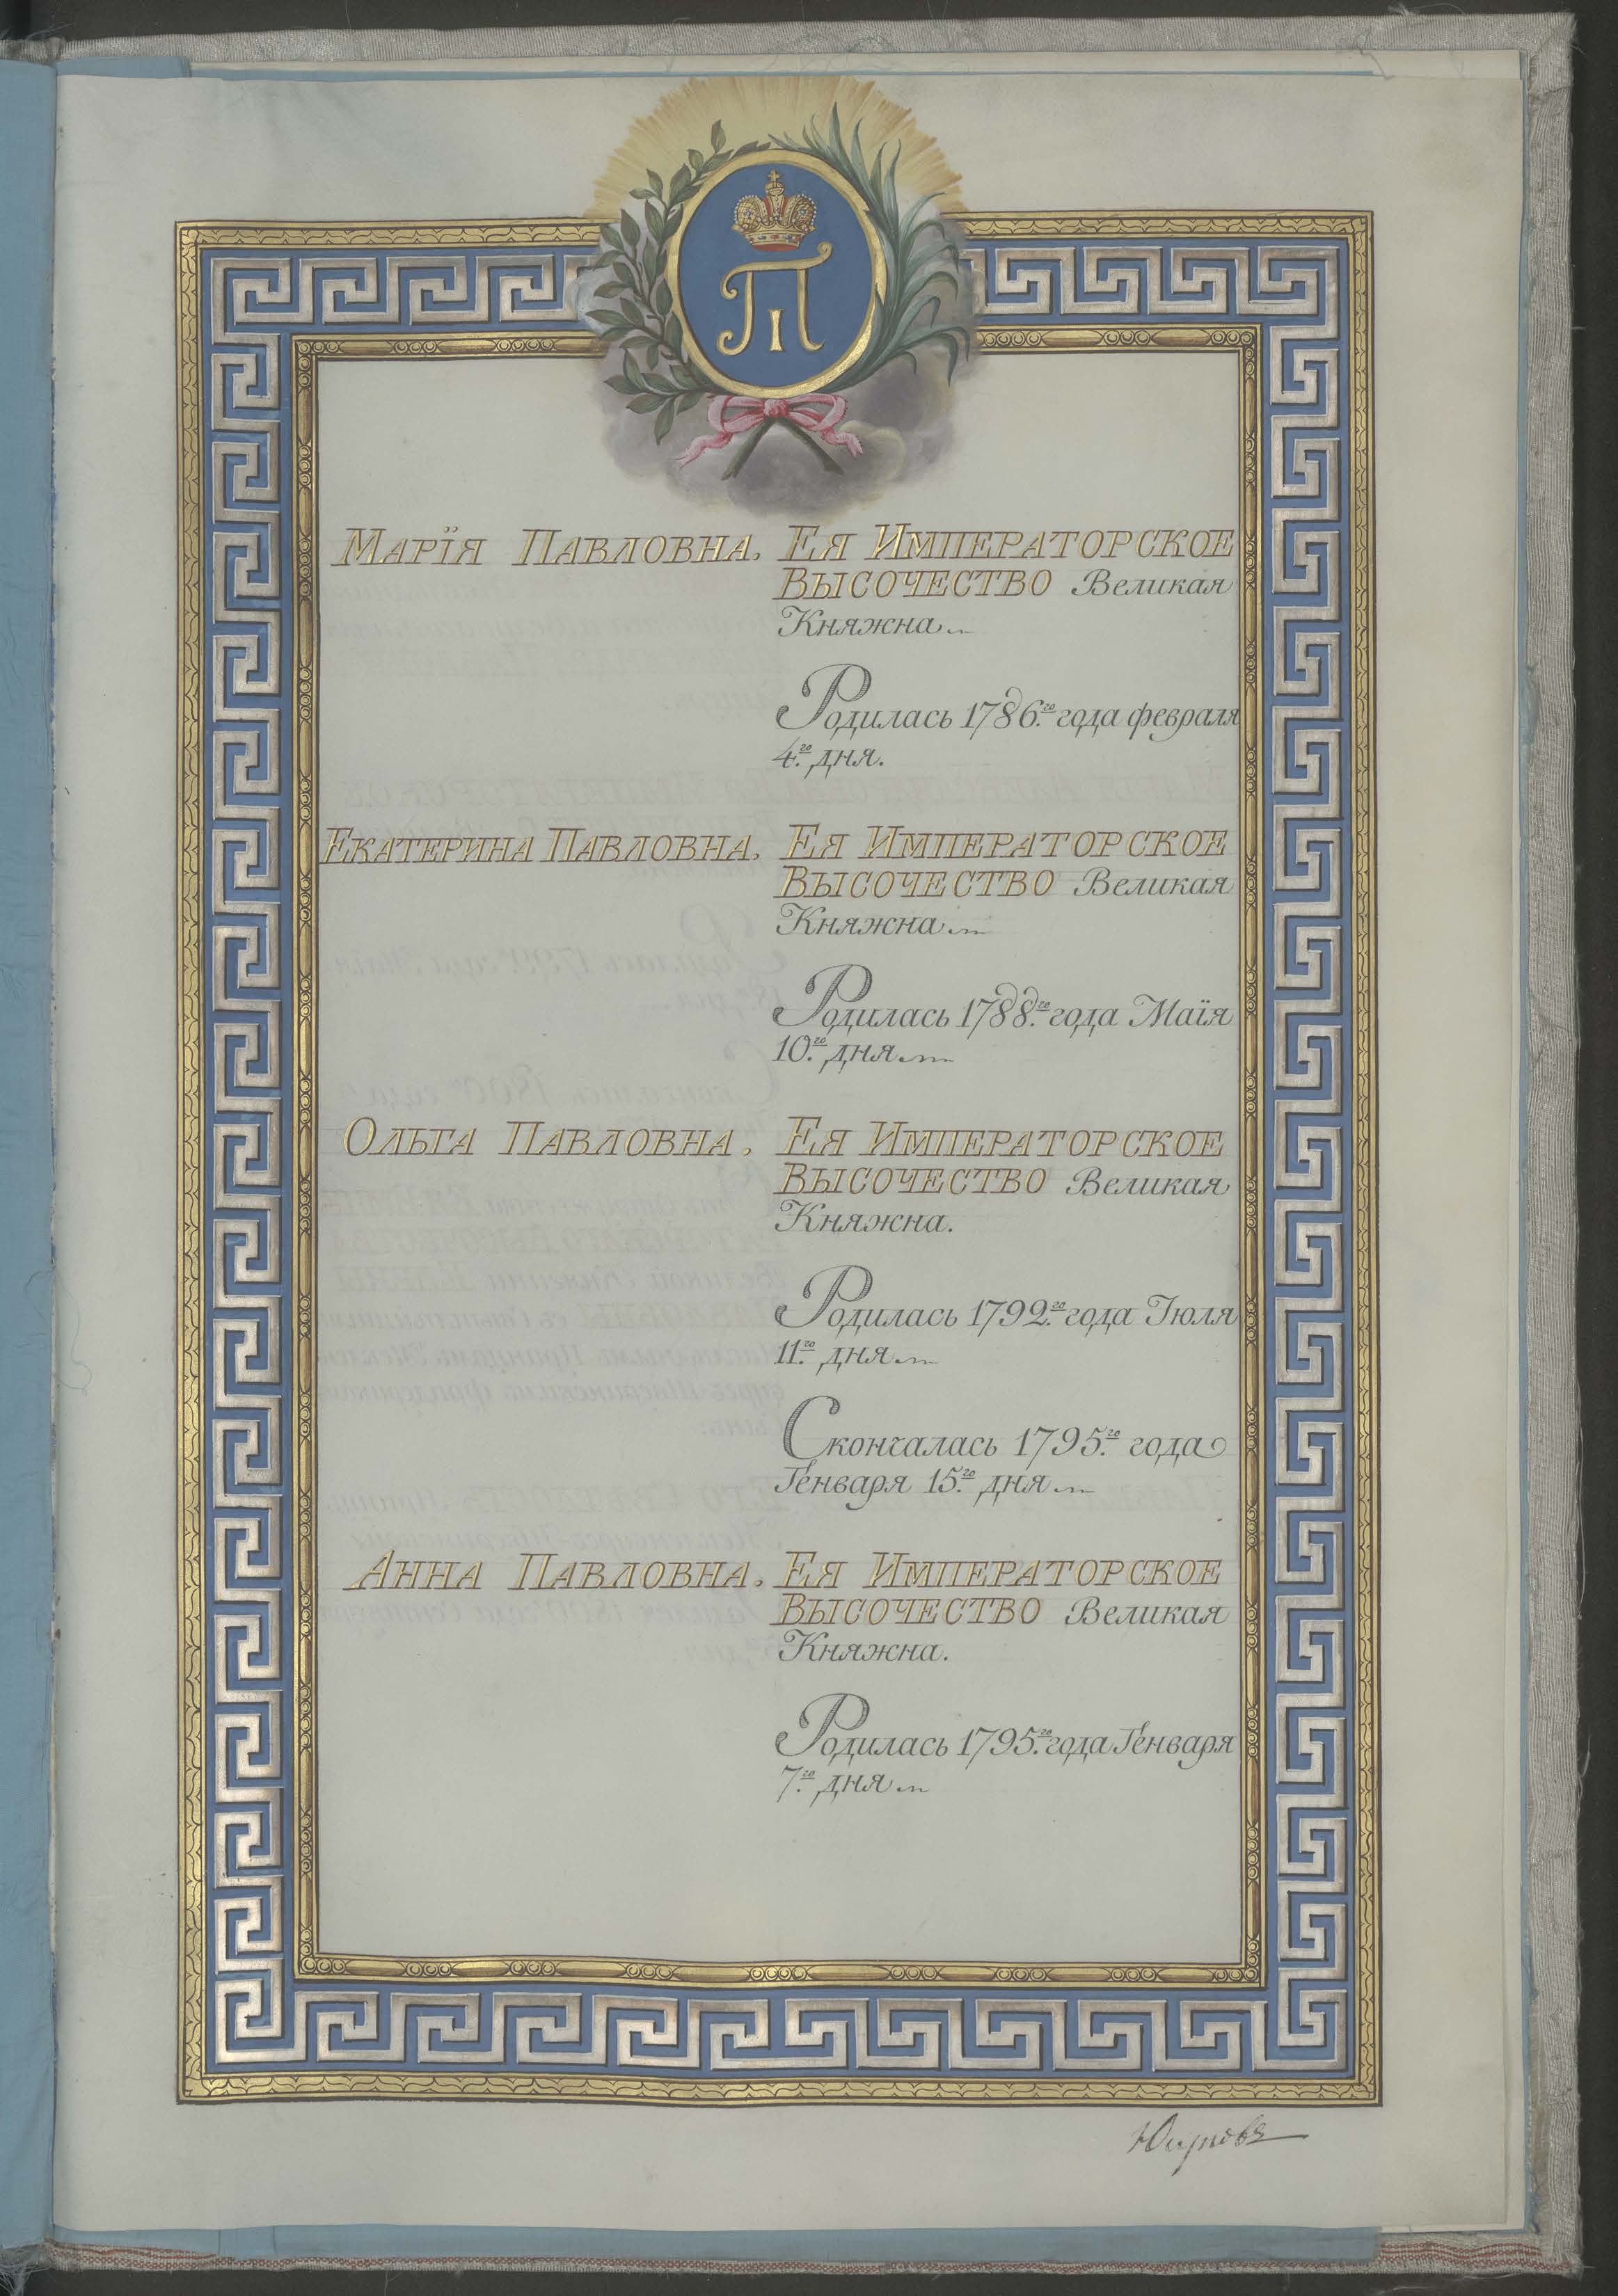 П I
Марїя Павловна, Ея Императорское
Высочество Великая
Княжна
Родилась 1786.го года февраля
4.го дня.
Екатерина Павловна, Ея Императорское
Высочество Великая
Княжна
Родилась 1788.го года Маїя
10.го дня
Ольга Павловна, Ея Императорское
Высочество Великая
Княжна.
Родилась 1792.го года Іюля
11.го дня
Скончалась 1795.го года
Генваря 15.го дня
Анна Павловна, Ея Императорское
Высочество Великая
Княжна.
Родилась 1795.го года Генваря
7.го дня